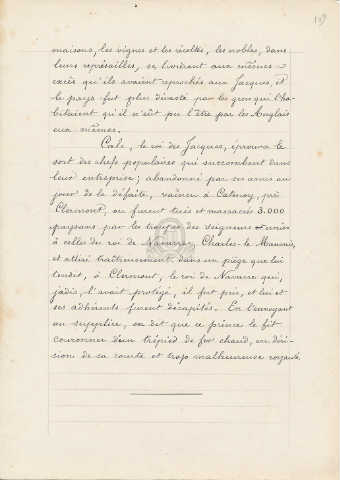 109
maisons, les vignes et les récoltes, les nobles, dans
leurs représailles, se livrèrent aux mêmes
excès qu'ils avaient reprochés aux Jacques, et
le pays fut plus dévasté par les gens qui l'ha-
bitaient qu'il n'eût pu l'être par les Anglais
eux mêmes.
Cale, le roi des Jacques, éprouva le
sort des chefs populaires qui succombent dans
leur entreprise; abandonné par ses amis au
jour de la défaite, vaincu à Catenoy, près
Clermont, où furent tués et massacrés 3.000
paysans par les troupes des seigneurs unies
à celles du roi de Navarre, Charles-le-Mauvais,
et attiré traîtreusement dans un piège que lui
tendit, à Clermont, le roi de Navarre qui,
jadis, l'avait protégé, il fut pris, et lui et
ses adhérents furent décapités. En l'envoyant
au supplice, on dit que ce prince le fit
couronner d'un trépied de fer chaud, en déri-
sion de sa courte et trop malheureuse royauté.